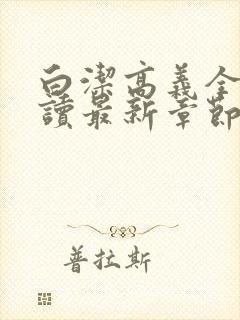 白潔高義全
讀最新章節
普拉斯